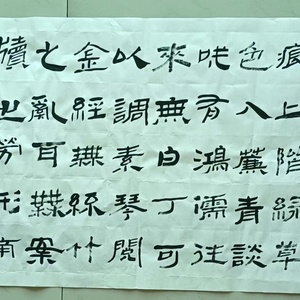 痕上階綠草
色入簾青談
咲有鴻儒往
來無白丁可
以調素琴閱
金經無絲竹
之亂耳無案
牘之勞形南